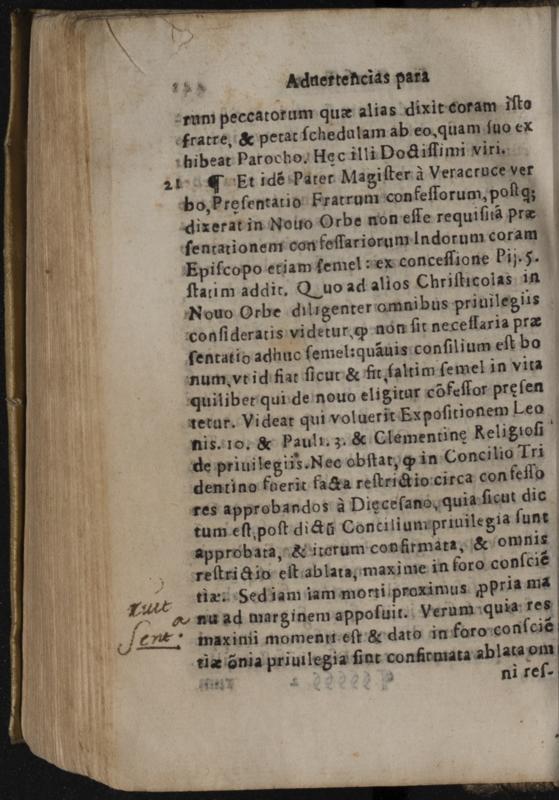 Aduertencias para
rum peccatorum quæ alias dixit coram iſto
fratre, & petat ſchedulam ab eo, quam ſuo ex
hibeat Parocho. Hęc illi Doctiſſimi viri.
21 ¶ Et idẽ Pater Magiſter à Veracruce ver
bo, Pręſentatio Fratrum confeſſorum, poſtq;
dixerat in Nouo Orbe non eſſe requiſitã præ
ſentationem confeſſariorum Indorum coram
Epiſcopo etiam ſemel: ex conceſſione Pij. 5.
ſtatim addit. Quo ad alios Chriſticolas in
Nouo Orbe diligenter omnibus priuilegiis
conſideratis videtur, ꝙ non ſit neceſſaria præ
ſentatio adhuc ſemel: quãuis conſilium eſt bo
num, vt id fiat ſicut & fit, ſaltim ſemel in vita
quilibet qui de nouo eligitur cõfeſſor pręſen
tetur. Videat qui voluerit Expoſitionem Leo
nis. 10. & Pauli. 3. & Clementinę Religioſi
de priuilegiis. Nec obſtat, ꝙ in Concilio Tri
dentino fuerit facta reſtrictio circa confeſſo
res approbandos à Dięceſano, quia ſicut dic
tum eſt, poſt dictũ Concilium priuilegia ſunt
approbata, & iterum confirmata, & omnis
reſtrictio eſt ablata, maxime in foro conſciẽ
tiæ. Sed iam iam morti proximus ꝓpria ma
nu ad marginem appoſuit. Verum quia res
maximi momenti eſt & dato in foro conſciẽ
tiæ õnia priuilegia ſint confirmata ablata om
ni reſ-
a
Sent.